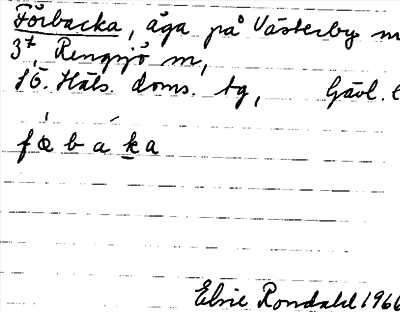 Förbacka, äga på Västerby m
3⁷, Rengsjö m,
SÖ. Häls. doms. tg, Gävl. l
fœbaka
Elsie Rondahl 1966